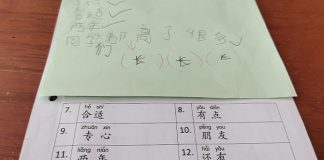 合适 ✓
两年 ✓
同学都高了很多
们(长)(长)(长)
7. hé shì 合适 8. yǒu diǎn 有点
9. zhuān xīn 专心 10. péng you 朋友
11. liǎng nián 两年 12. hái yǒu 还有